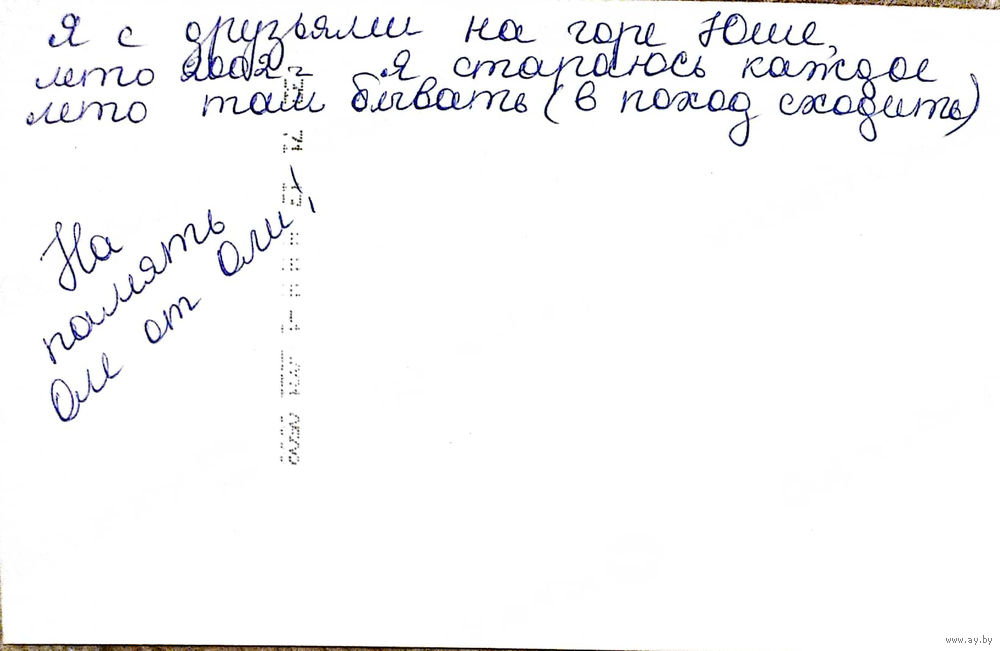 Я с друзьями на горе Юше,
лето я стараюсь каждое
лето там бывать (в поход сходить)
На
память
Оле от Оли!
www.ay.by